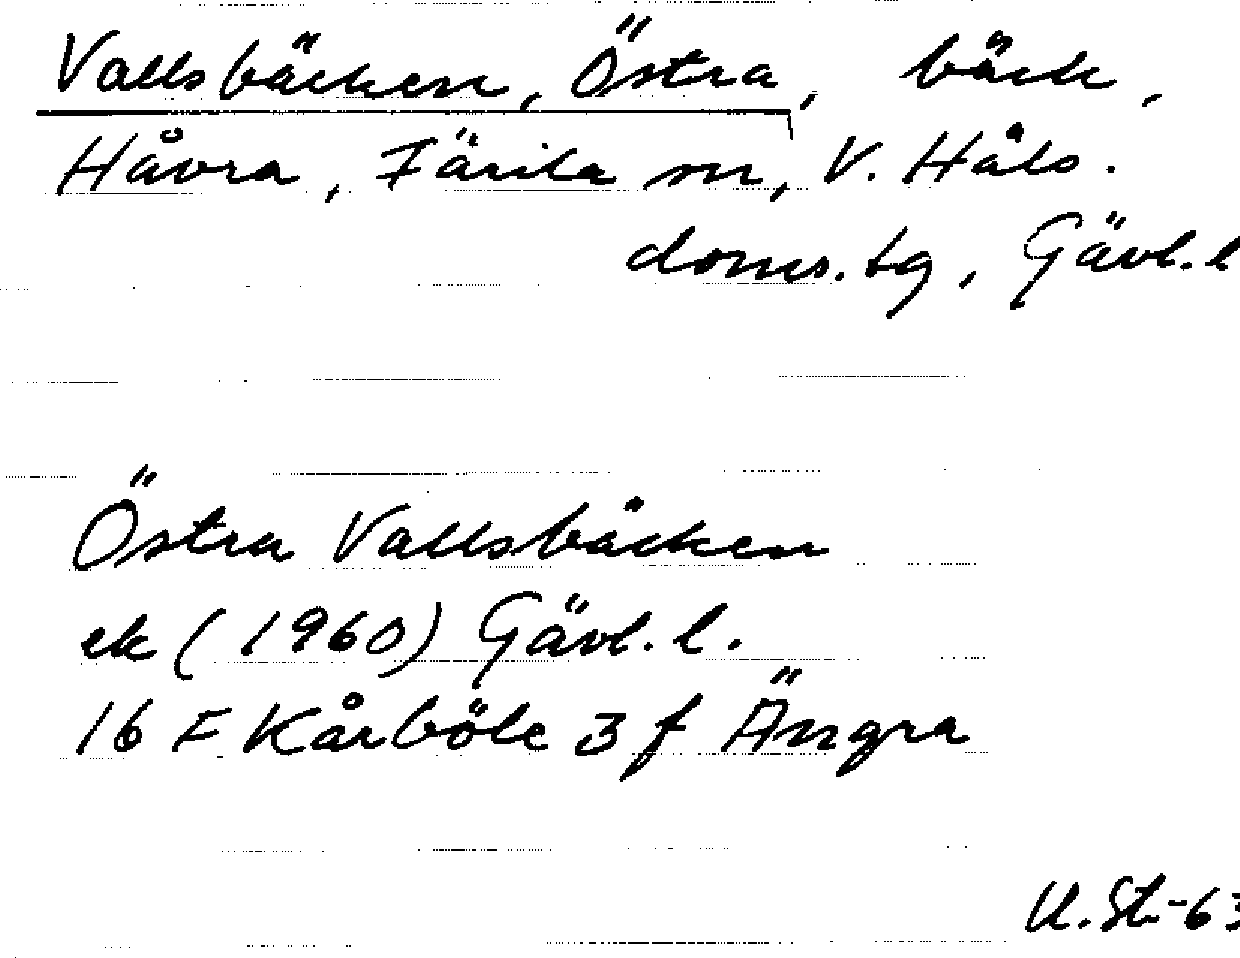 Vallsbäcken, Östra, bäck,
Håvra, Färila sn, V. Häls.
doms.tg, Gävl. l
Östra Vallsbäcken
ek (1960) Gävl. l.
16 F Kårböle 3 f Ängra
U. St-63